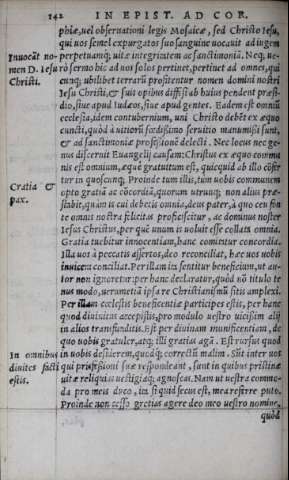 142 IN EPIST. AD COR.
phiæ, uel obseruationi legis Mosaicæ, sed Christo Iesu,
qui nos semel expurgatos suo sanguine uocauit ad iugem
Inuocāt no- perpetuamq́; uitæ integritatem ac sanctimoniā. Neq́; ue-
men D. Iesu rò sermo hic ad uos solos pertinet, pertinet ad omnes, qui
Christi. cunq́; ubilibet terrarū profitentur nomen domini nostri
Iesu Christi, & suis opibus diffisi ab huius pendent præsi-
dio, siue apud Iudæos, siue apud gentes. Eadem est omniū
ecclesia, idem contubernium, uni Christo debēt ex æquo
cuncti, quòd à uitiorū sordissimo seruitio manumissi sunt,
& ad sanctimoniæ professionē delecti. Nec locus nec ge-
nus discernit Euangelij causam: Christus ex æquo commu
nis est omnium, æquè gratuitum est, quicquid ab illo cōfer
tur in quoscunq́;. Proinde tum illis, tum uobis communem
Cratia & opto gratiā ac cōcordiā, quorum utrunq́; non alius præ-
pax. stabit, quàm is cui debetis omnia, deus pater, à quo ceu fon
te omnis nostra felicitas proficiscitur, ac dominus noster
Iesus Christus, per quē unum is uoluit esse collata omnia.
Gratia tuebitur innocentiam, hanc comitetur concordia.
Illa uos à peccatis assertos, deo reconciliat, hæc uos uobis
inuicem conciliat. Per illam ita sentitur beneficium, ut au-
tor non ignoretur: per hanc declaratur, quòd nō titulo te
nus modo, uerumetiā ipsa re Christianismū sitis amplexi.
Per illam cœlestis beneficentiæ participes estis, per hanc
quod diuinitus accepistis, pro modulo uestro uicissim alij
in alios transfunditis. Est per diuinam munificentiam, de
quo uobis gratuler, atq́; illi gratias agā. Est rursus quod
In omnibus in uobis desyderem, quodq́; correctū malim. Sūt inter uos
diuites facti qui professioni suæ respondeant, sunt in quibus pristinæ
estis. uitæ reliquias uestigiáq́; agnoscas. Nam ut uestra commo-
da pro meis duco, ita si quid secus est, mea referre puto.
Proinde non cesso gratias agere deo meo uestro nomine,
quòd